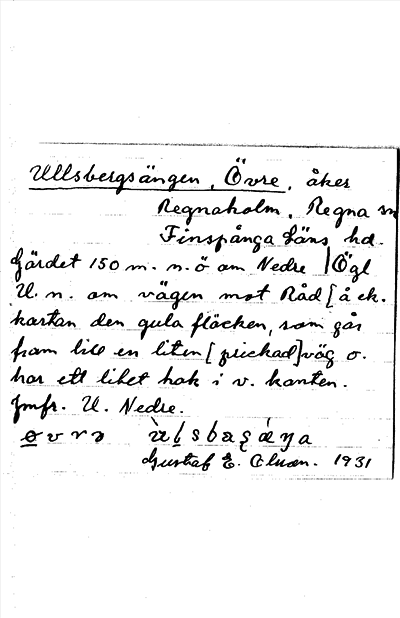 Ullsbergsängen, Övre, åker
Regnaholm, Regna sn
Finspånga läns hd.
Gärdet 150 m. n.ö om Nedre | Ögl
U. n. om vägen mot Råd [å ek.
kartan den gula fläcken, som går
fram till en liten [prickad] väg o.
har ett litet hak i v. kanten.
Jmfr. U. Nedre.
Gustaf E. Aluan. 1931